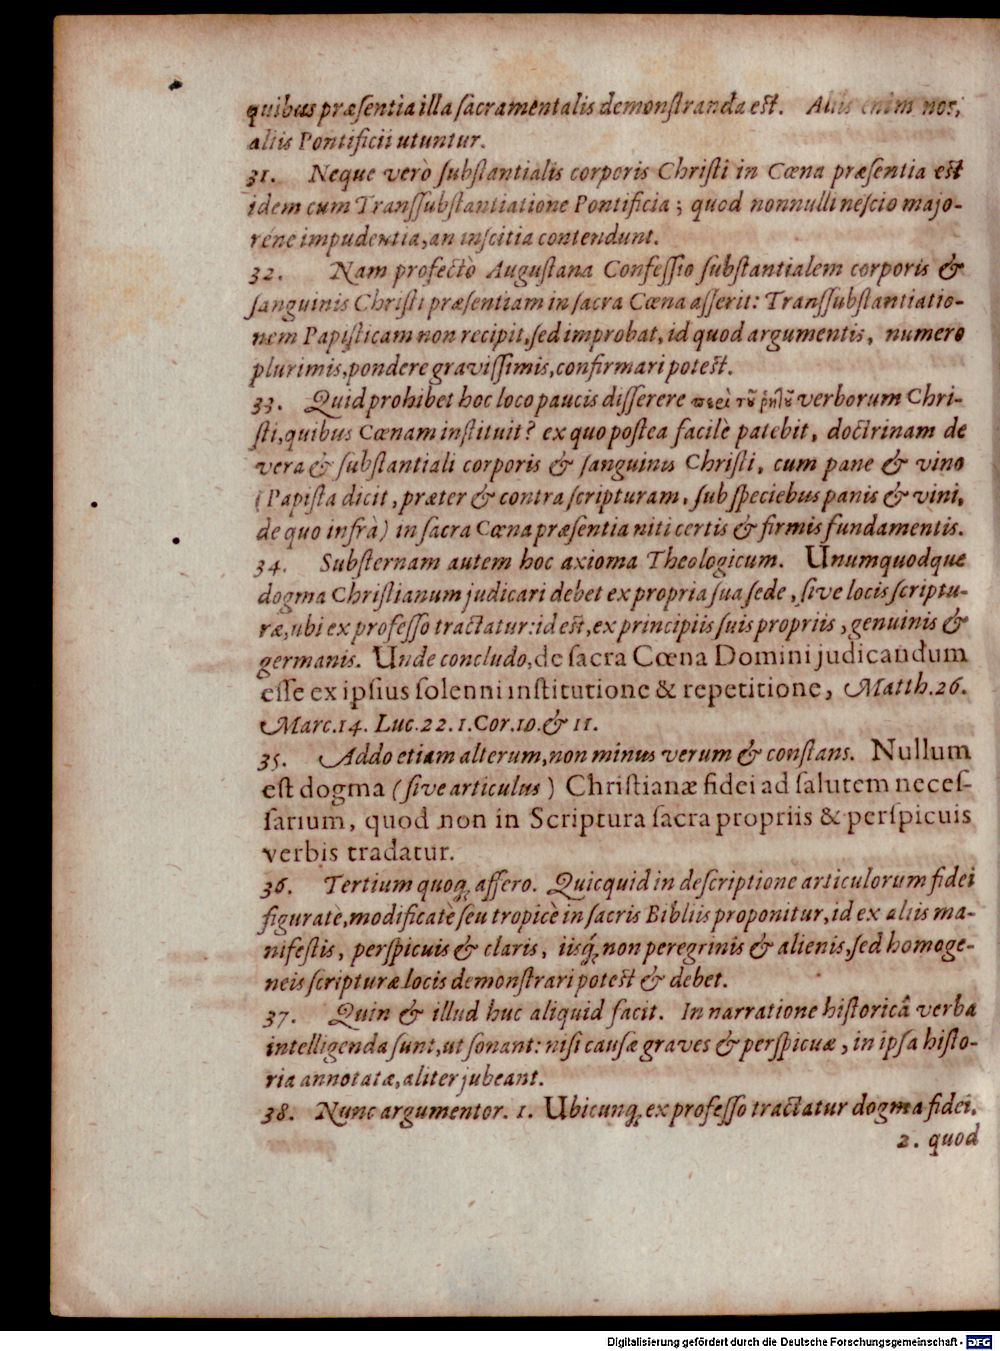 quibus præsentia illa sacramentalis demonstranda est. Aliis enim nos,
aliis Pontificii utuntur.
31. Neque verò substantialis corporis Christi in Cœna præsentia est
idem cum Transsubstantiatione Pontificia; quod nonnulli nescio majo-
réne impudentia, an inscitia contendunt.
32. Nam profectò Augustana Confessio substantialem corporis &
sanguinis Christi præsentiam in sacra Cœna asserit: Transsubstantiatio-
nem Papisticam non recipit, sed improbat, id quod argumentis, numero
plurimis, pondere gravissimis, confirmari potest.
33. Quid prohibet hoc loco paucis disserere περὶ τοῦ ῥητοῦ verborum Chri-
sti, quibus Cœnam instituit? ex quo postea facilè patebit, doctrinam de
vera & substantiali corporis & sanguinis Christi, cum pane & vino
(Papista dicit, præter & contra scripturam, sub speciebus panis & vini,
de quo infrà) in sacra Cœna præsentia niti certis & firmis fundamentis.
34. Substernam autem hoc axioma Theologicum. Unumquodque
dogma Christianum judicari debet ex propria sua sede, sive locis scriptu-
ræ, ubi ex professo tractatur: id est, ex principiis suis propriis, genuinis &
germanis. Unde concludo, de sacra Cœna Domini judicandum
esse ex ipsius solenni institutione & repetitione, Matth. 26.
Marc. 14. Luc. 22. 1. Cor. 10. & 11.
35. Addo etiam alterum, non minus verum & constans. Nullum
est dogma (sive articulus) Christianæ fidei ad salutem neces-
sarium, quod non in Scriptura sacra propriis & perspicuis
verbis tradatur.
36. Tertium quoq; assero. Quicquid in descriptione articulorum fidei
figuratè, modificatè seu tropicè in sacris Bibliis proponitur, id ex aliis ma-
nifestis, perspicuis & claris, iisq́; non peregrinis & alienis, sed homoge-
neis scripturæ locis demonstrari potest & debet.
37. Quin & illud huc aliquid facit. In narratione historicâ verba
intelligenda sunt, ut sonant: nisi causæ graves & perspicuæ, in ipsa histo-
ria annotatæ, aliter jubeant.
38. Nunc argumentor. 1. Ubicunq; ex professo tractatur dogma fidei.
2. quod
Digitalisierung gefördert durch die Deutsche Forschungsgemeinschaft - DFG